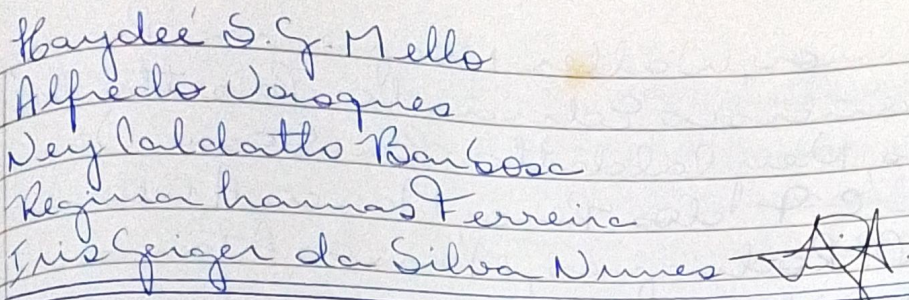 Haydeé S. G. Mello
Alfredo Vasques
Ney Caldatto Barbosa
Regina Ferreira
Iris Geiger da Silva Nunes